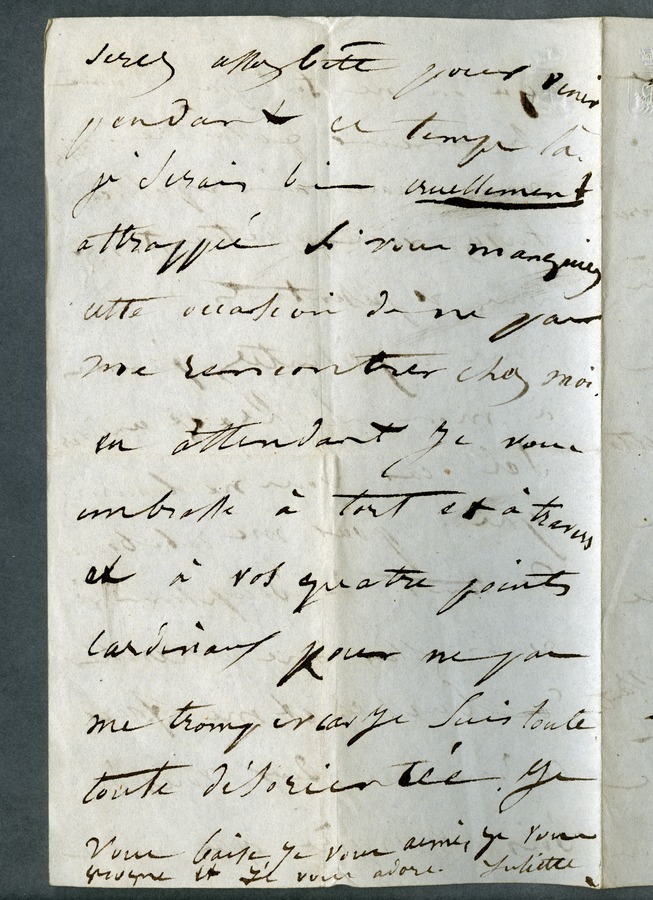 serez assez bête pour venir
pendant ce temps là.
je serais bien cruellement
attrappée si vous manquiez
cette occasion de ne pas
me rencontrer chez moi.
en attendant je vous
embrasse à tort et à travers
et à vos quatre points
cardinaux pour ne pas
me tromper car je suis toute
toute désorientée. Je
vous baise, je vous aime, je vous
et je vous adore. Juliette